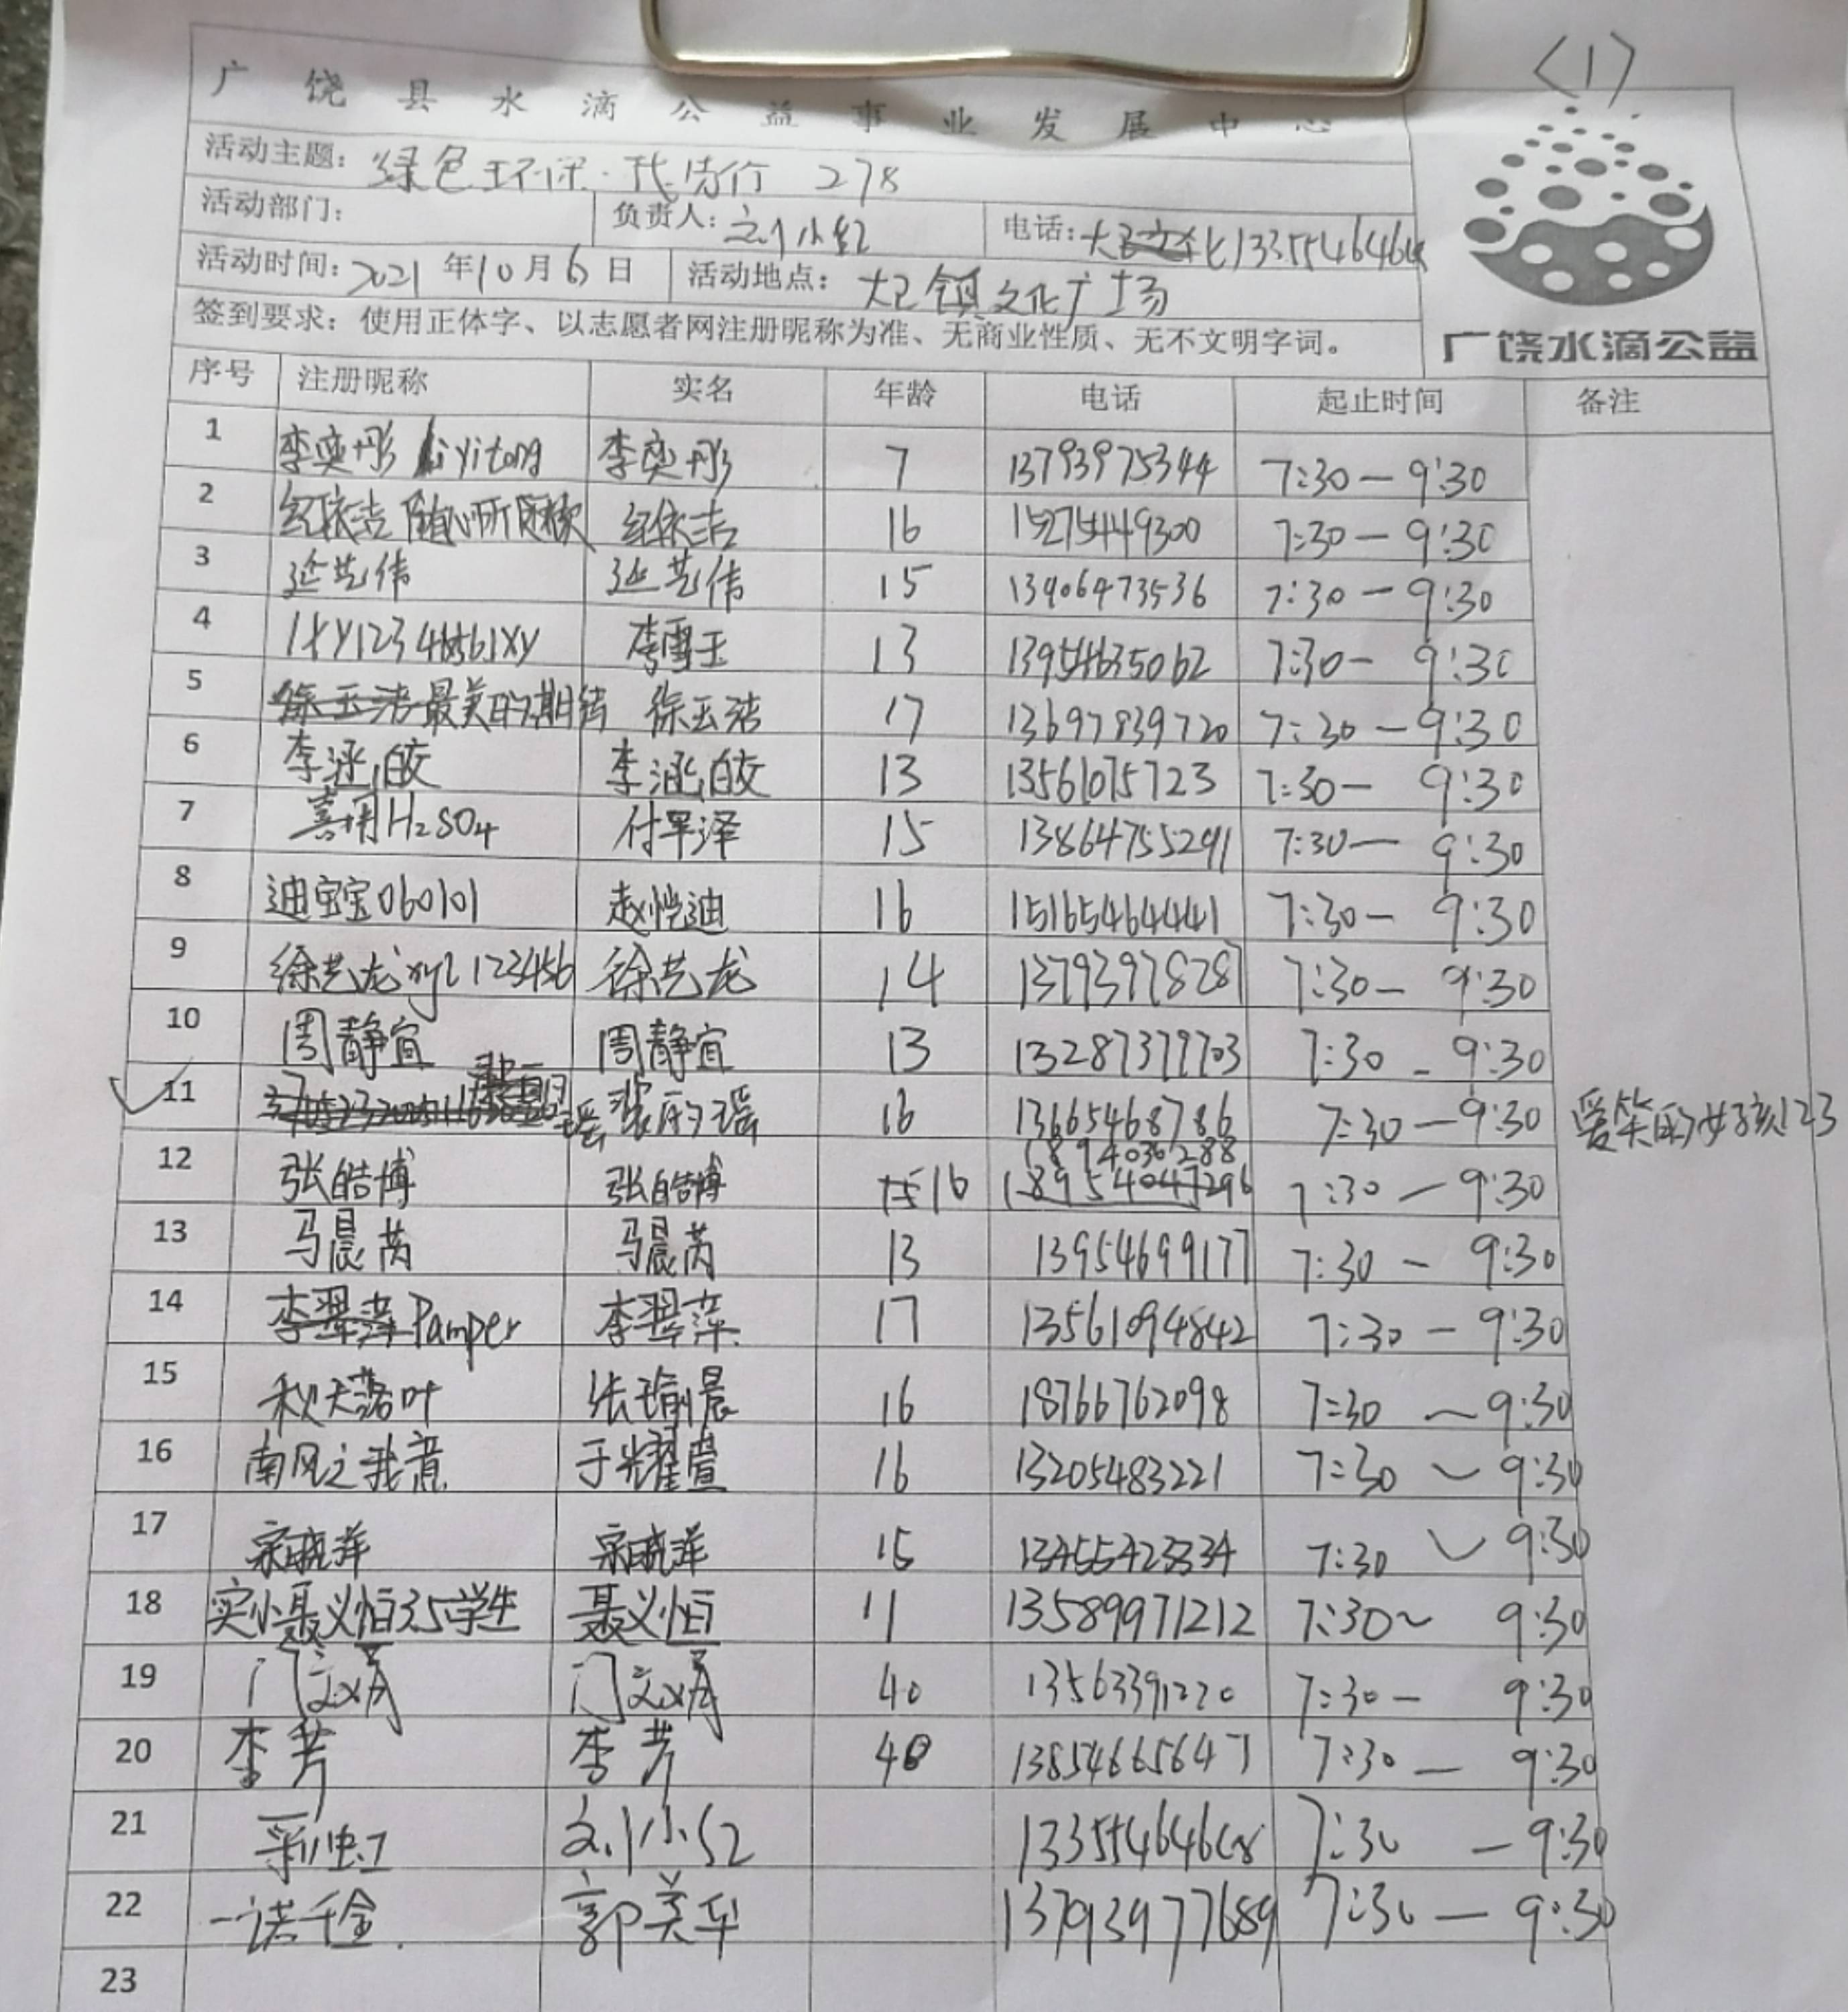 〈1〉
广饶县水滴公益事业发展中心
活动主题：绿色环保·我先行 278
活动部门： 负责人：刘小红 电话：13355464648
活动时间：2021年10月6日 活动地点：大王镇文化广场
签到要求：使用正体字、以志愿者网注册昵称为准、无商业性质、无不文明字词。
广饶水滴公益
序号 注册昵称 实名 年龄 电话 起止时间 备注
1 李奕彤 liyitong 李奕彤 7 13793975344 7:30—9:30
2 纪依洁 随心所欲 纪依洁 16 15275449300 7:30—9:30
3 延艺伟 延艺伟 15 13906473536 7:30—9:30
4 lxy123456lxy 李雪玉 13 13954635062 7:30—9:30
5 徐玉洁 最美的期待 徐玉洁 17 13697839720 7:30—9:30
6 李涵皎 李涵皎 13 13561075723 7:30—9:30
7 H2SO4 付罕泽 15 13864755291 7:30—9:30
8 迪宝宝060101 赵恺迪 16 15165464441 7:30—9:30
9 徐艺龙xyl123456 徐艺龙 14 13793978787 7:30—9:30
10 周静宜 周静宜 13 13287379703 7:30—9:30
11 16 13665468786 7:30—9:30 爱笑的女孩123
12 张皓博 张皓博 15 16 18954047296 7:30—9:30
13 马晨芮 马晨芮 13 13954699177 7:30—9:30
14 李翠萍 Pamper 李翠萍 17 13561094842 7:30—9:30
15 秋天落叶 张瑜晨 16 18766762098 7:30～9:30
16 南风之我意 于耀萱 16 13205483221 7:30～9:30
17 宗晓萍 宗晓萍 15 7:30～9:30
18 实小聂义恒3.5学生 聂义恒 11 13589971212 7:30～9:30
19 门文娟 门文娟 40 13563391220 7:30—9:30
20 李芳 李芳 40 13854665647 7:30—9:30
21 彩虹 刘小红 13355464648 7:30—9:30
22 一诺千金 郭美华 13793977689 7:30—9:30
23